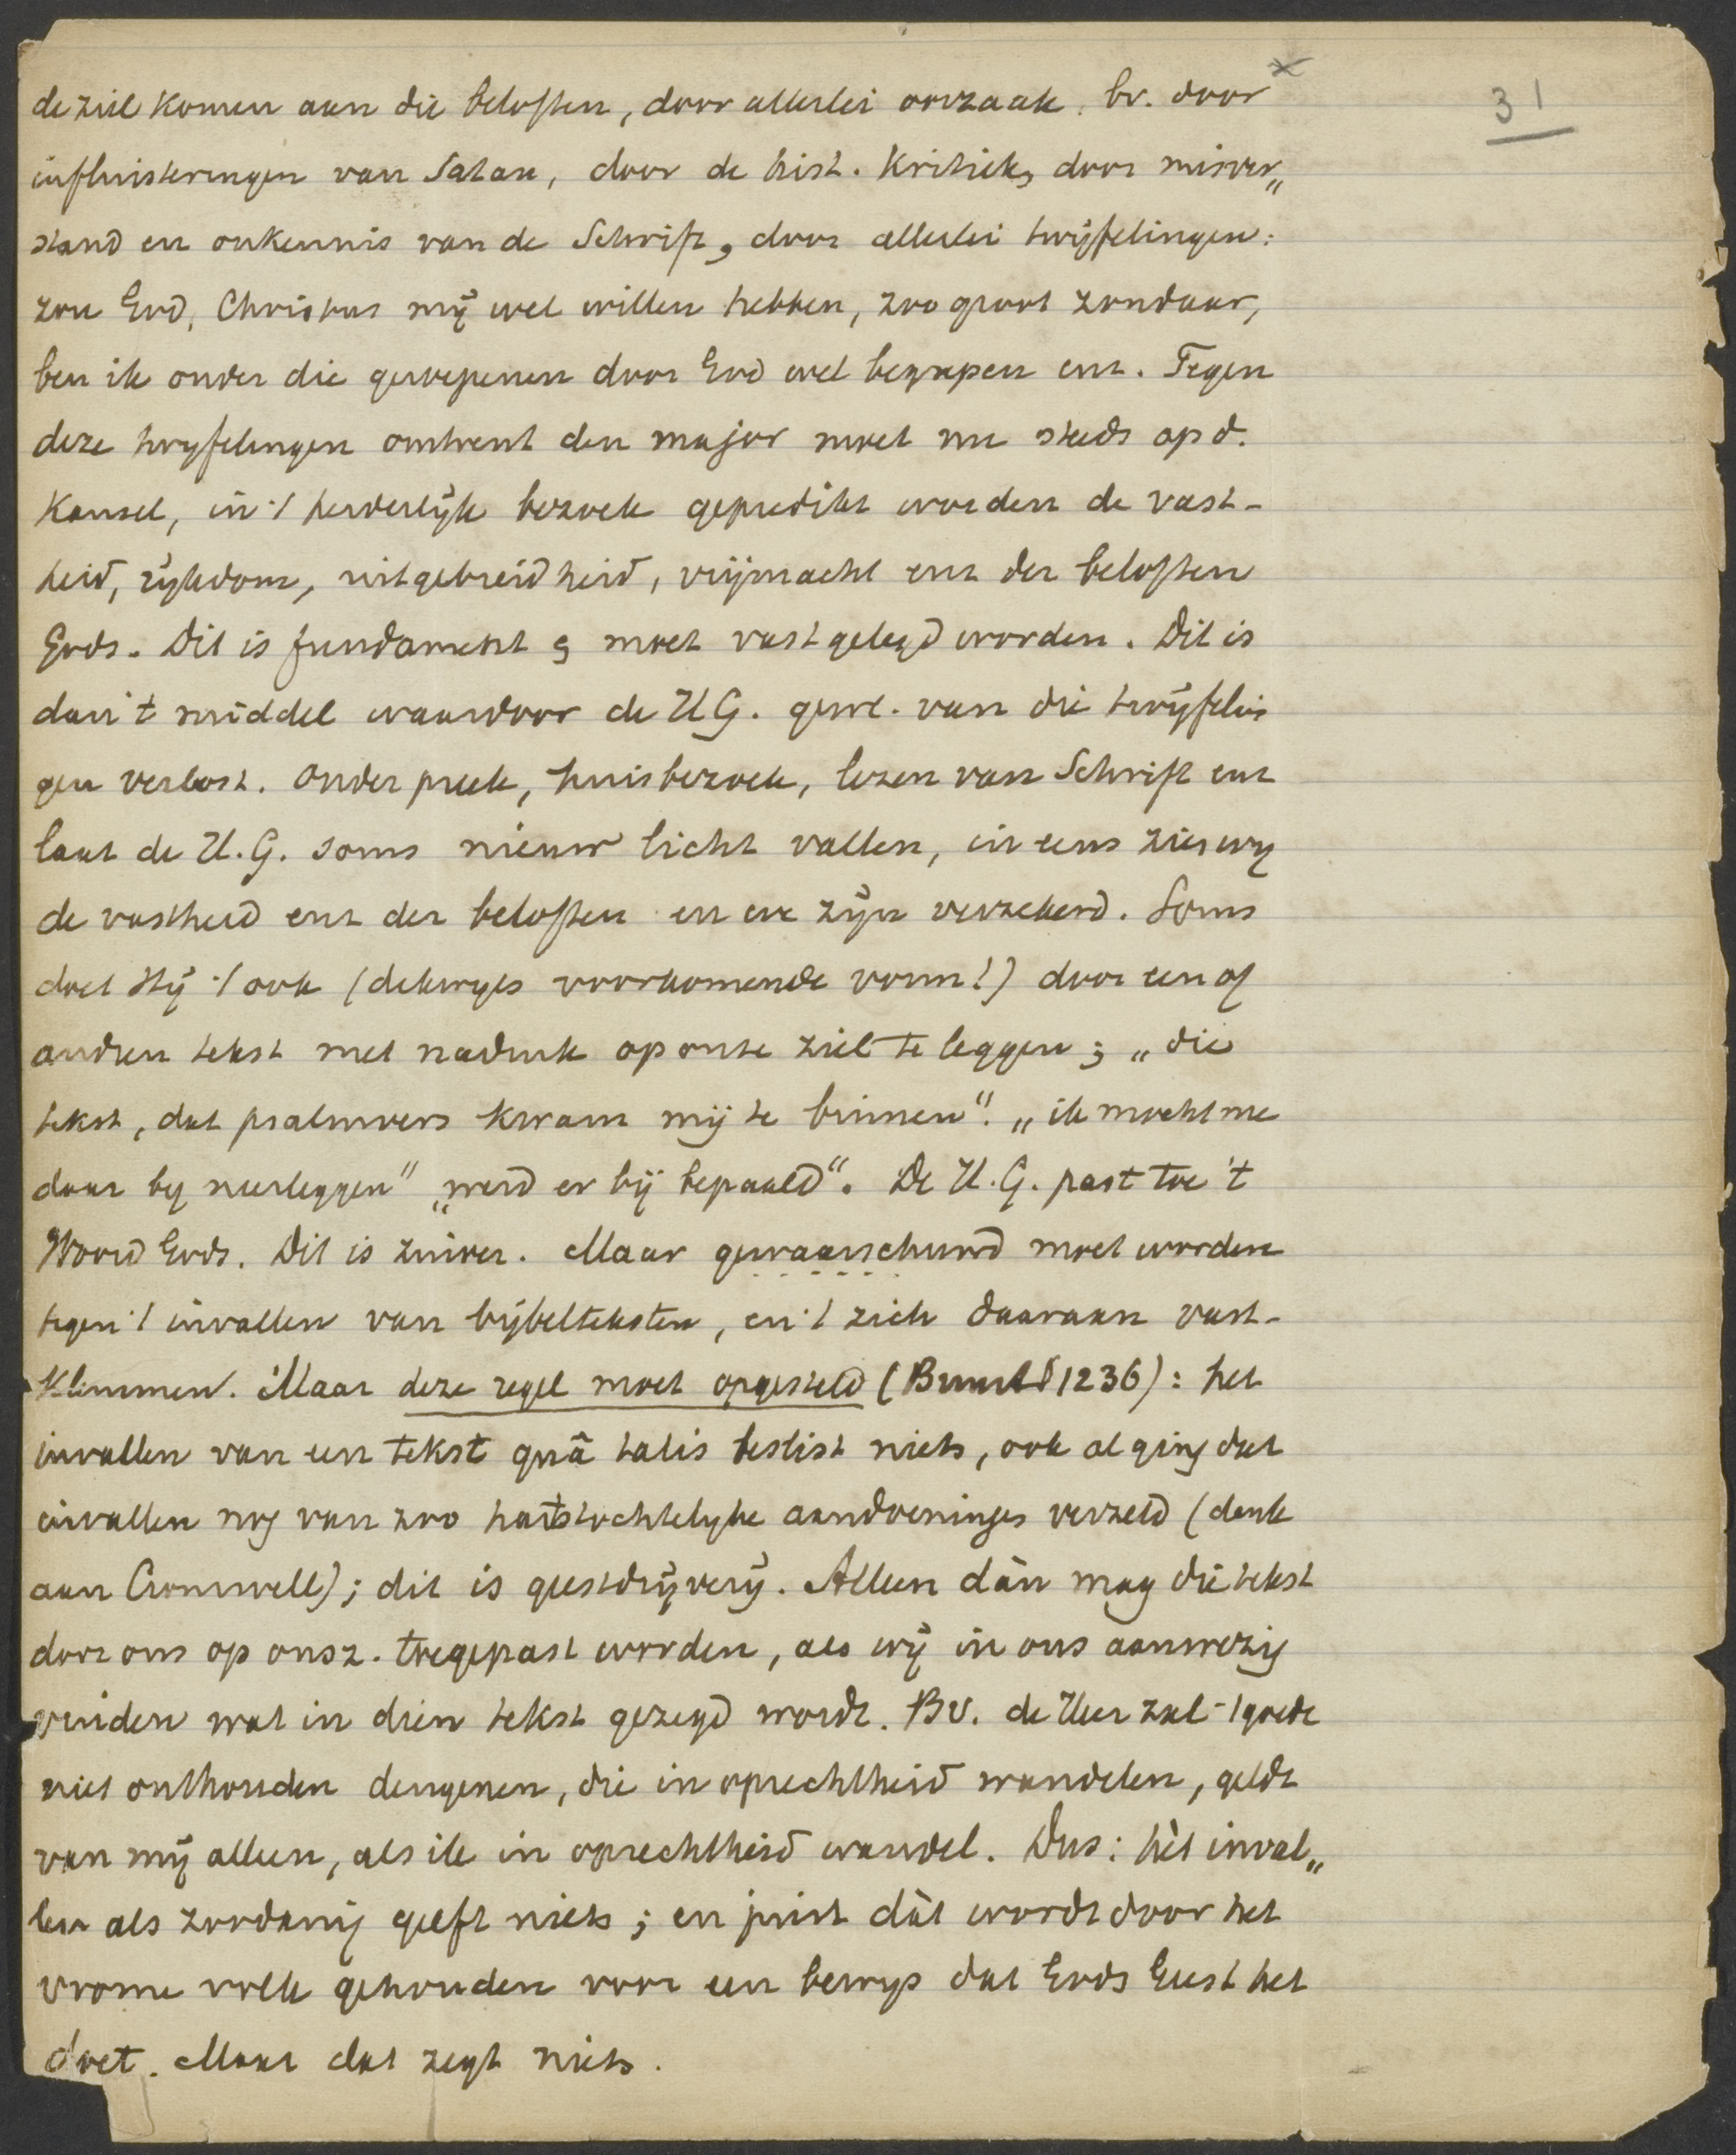 31
de ziel komen aan die beloften, door allerlei oorzaak. bv. door
influisteringen van Satan, door de hist. kritiek, door misver„
stand en onkennis van de Schrift, door allerlei twijfelingen:
zou God, Christus mij wel willen hebben, zoo groot zondaar,
ben ik onder die geroepenen door God wel begrepen enz. Tegen
deze twyfelingen omtrent den major moet nu steeds op d.
Kansel, in 't herderlijk bezoek gepredikt worden de vast-
heid, rijkdom, uitgebreidheid, vrijmacht enz der beloften
Gods. Dit is fundament & moet vastgelegd worden. Dit is
dan 't middel waardoor de H G. gew. van die twijfelin
gen verlost. Onder preek, huisbezoek, lezen van Schrift enz
laat de H.G. soms nieuw licht vallen, in eens zien wy
de vastheid enz der beloften en we zijn verzekerd. Soms
doet Hij 't ook (dikwyls voorkomende vorm!) door een of
andren tekst met nadruk op onze ziel te leggen; „die
tekst, dat psalmvers kwam mij te binnen". „ik mocht me
daar by neerleggen" „werd er bij bepaald". De H.G. past toe 't
Woord Gods. Dit is zuiver. Maar gewaarschuwd moet worden
tegen 't invallen van bijbelteksten, en 't zich daaraan vast-
klemmen. Maar deze regel moet opgesteld (Brunt 1236): het
invallen van een tekst quâ talis beslist niets, ook al ging dat
invallen nog van zoo hartstochtelyke aandoeninges verzeld (denk
aan Cromwell); dit is geestdrijverij. Alleen dàn mag die tekst
door ons op onsz. toegepast worden, als wij in ons aanwezig
vinden wat in dien tekst gezegd wordt. Bv. de Heer zal 't goede
niet onthouden dengenen, die in oprechtheid wandelen, geldt
van mij alleen, als ik in oprechtheid wandel. Dus: hèt inval„
len als zoodanig geeft niets; en juist dàt wordt door het
vrome volk gehouden voor een bewys dat Gods Geest het
doet. Maar dat zegt niets.